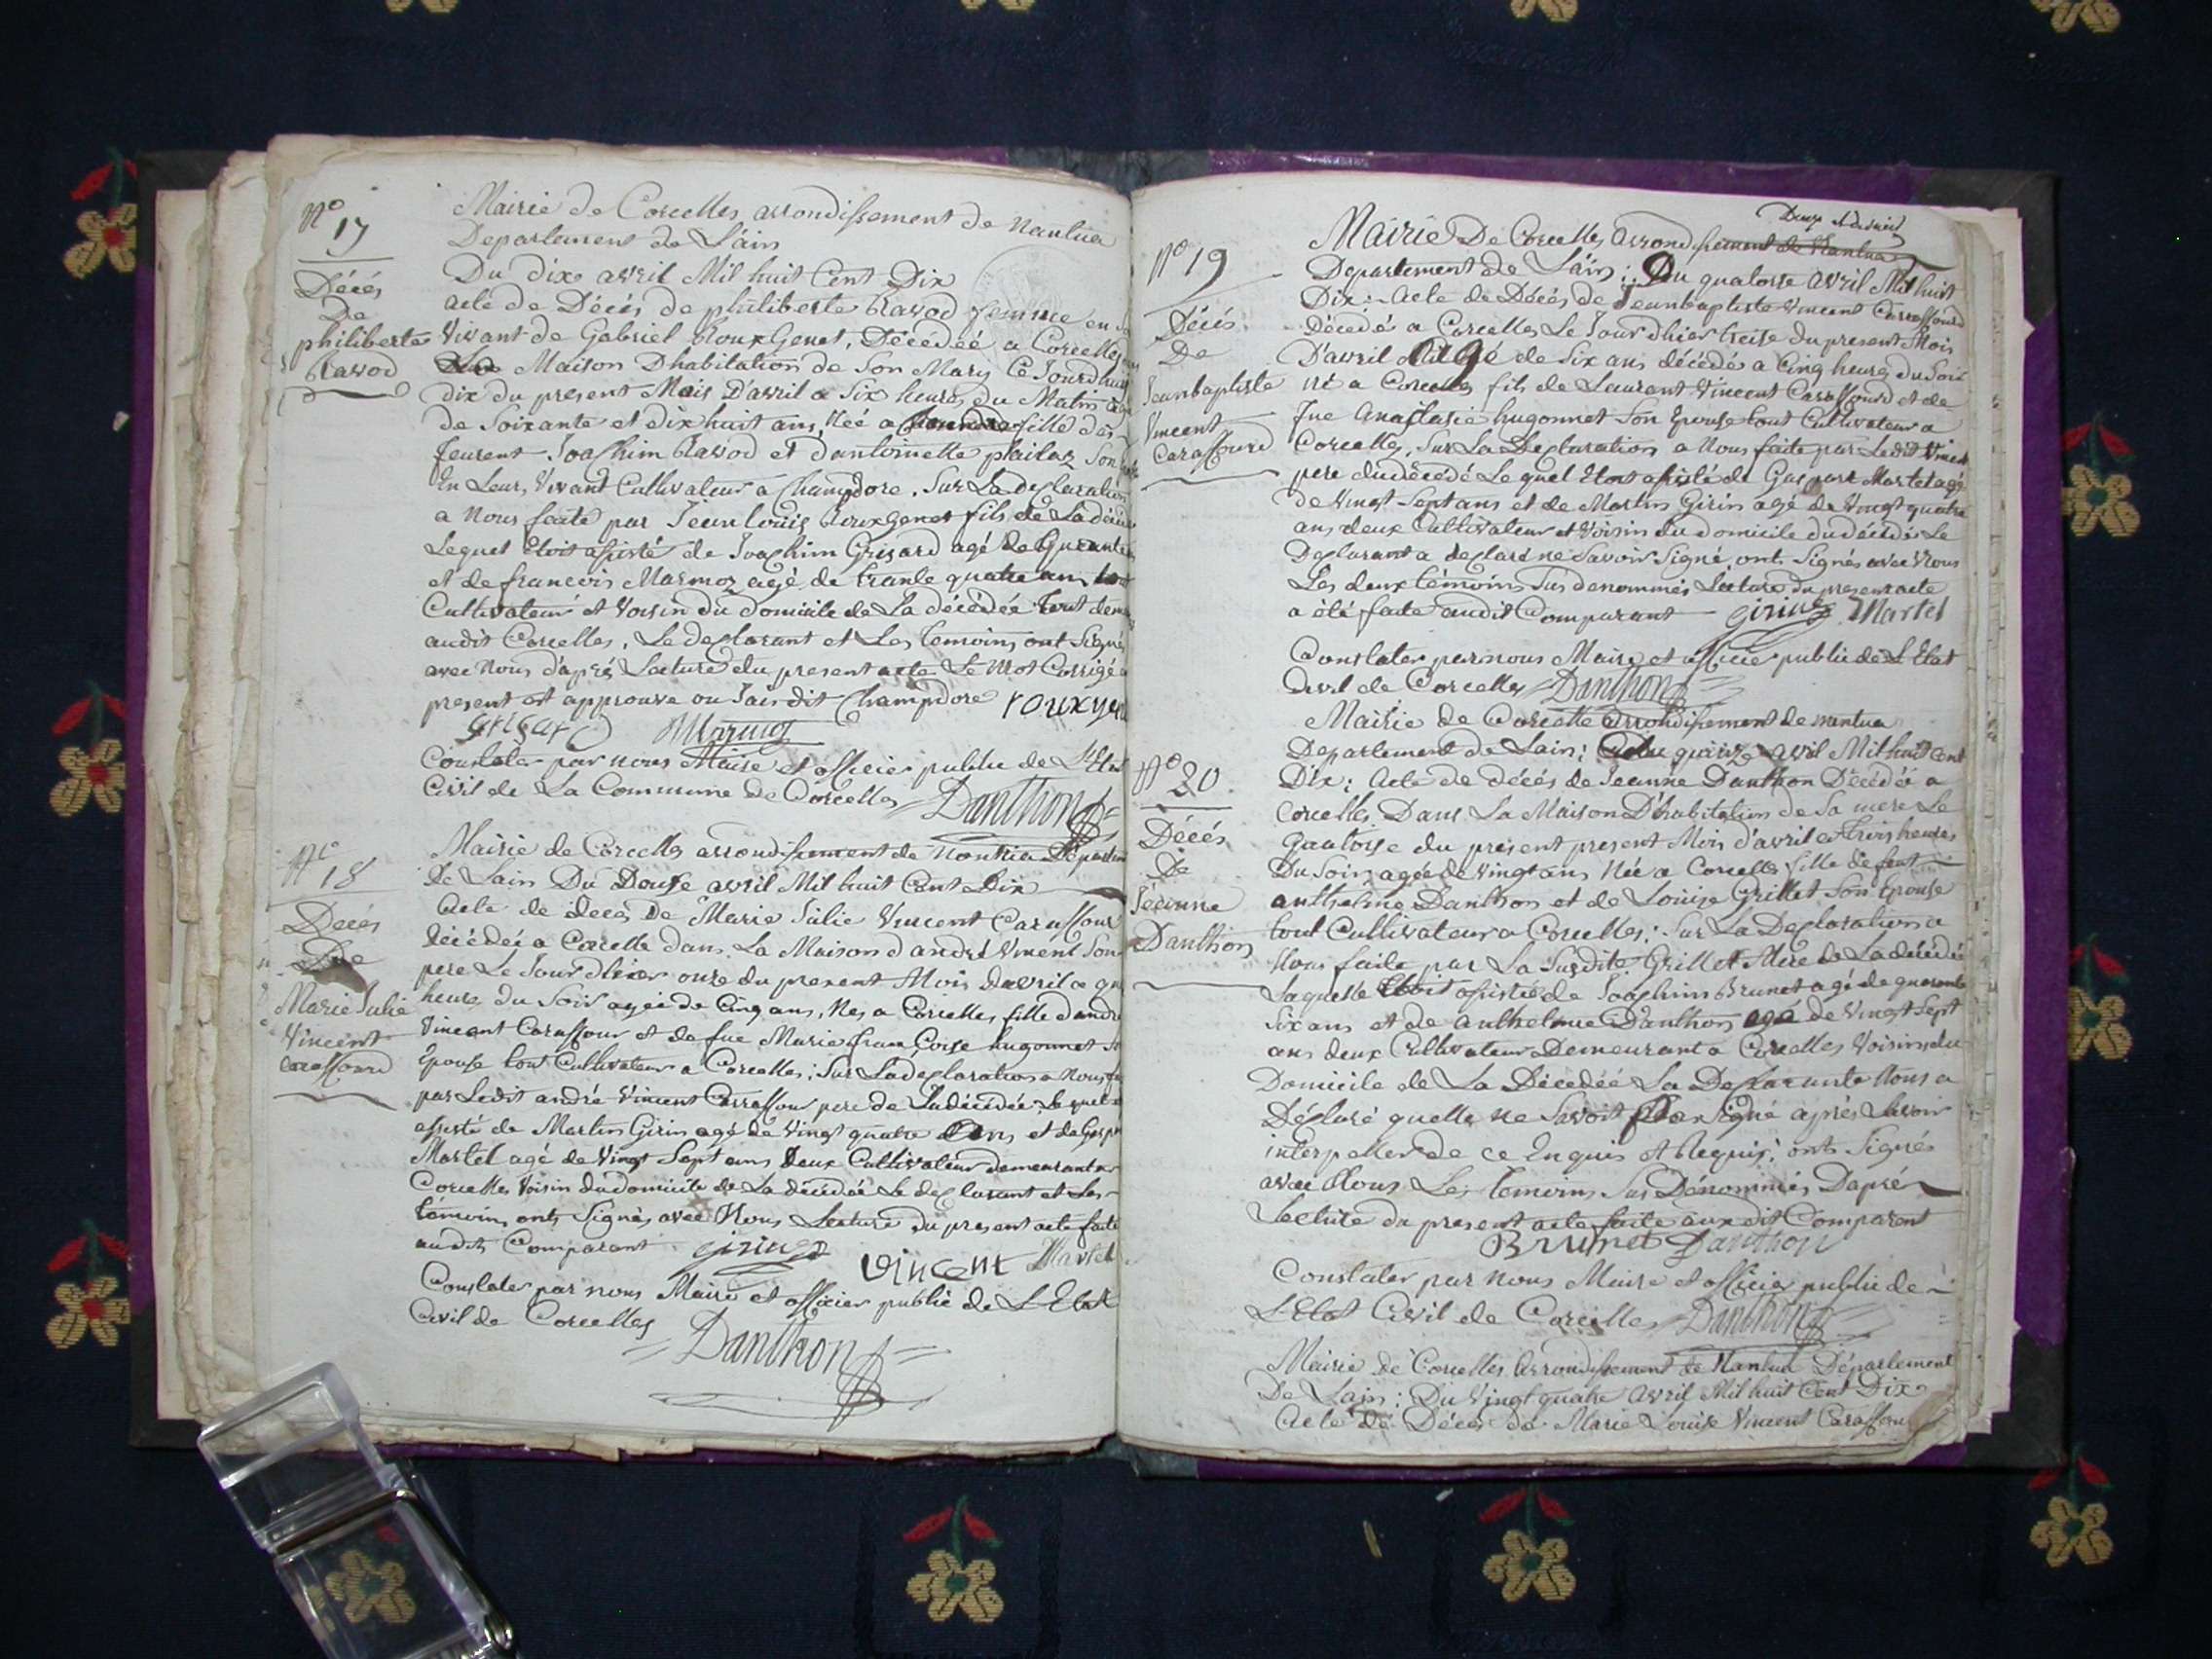 N° 17
Décés
De
philiberte
Ravod
Mairie de Corcelles arrondissement de Nantua
Departement de L'ain
Du dix avril Mil huit Cent Dix
acte de Décés de philiberte Ravod femme en
Vivant de Gabriel Rouxgenet, Décédéé a Corcelles
Maison Dhabitation de Son Mary Ce Jourdhuy
dix du present Mois D'avril a Six heures du Matin agé
de Soixante et dix huit ans, Néé a fille des
feurent Joachim Ravod et d'antoinette pailaz Son
En Leur, Vivant Cultivateur a Champdore. Sur La declaration
a Nous faite par Jean louis Rouxgenet fils de La
Lequel Etoit assisté de Joachim Grisard agé de Quarante
et de francois Marmoz agé de trante quatre ans tout
Cultivateur et Voisin du domicile de La décédée tout
audit Corcelles. Le declarant et Les temoins ont Signés
avec Nous d'aprés Lecture du present acte Le Mot Corrigé
present et approuve ou Jais dit Champdore rouxgen
grisard Marmoz
Constater par nous Maire et officier public de L'Etat
Civil de La Commune de Corcelles Danthon
N° 18
Decés
De
Marie Julie
Vincent
Carassourd
Mairie de Corcelles arrondissement de Nantua Departem
De Lain Du Douse avril Mil huit Cent Dix
Acte de deces de Marie Julie Vincent Carassour
décédée a Corcelle dans La Maison d'andré Vincent Son
pere Le Jour dhier onze du present Mois davril a
heures du Soir agée de Cinq ans, Née a Corcelles fille d'andré
Vincent Carassour et de fue Marie francoise hugonnet
Epouse tout Cultivateur a Corcelles; Sur La declaration a Nous
par Ledit andré Vincent Carrassour pere de La décédée Lequel
assisté de Martin Girin agé de Vingt quatre ans et de
Martel agé de Vingt Sept ans Deux Cultivateur demeurant a
Corcelles Voisin du domicile de La décédée Le declarant et Les
témoins onts Signés avec Nous Lecture du present acte faite
audits Comparant girin Vincent Martel
Constater par nous Maire et officier public de L'Etat
Civil de Corcelles
Danthon
N° 19
Décés
De
Jeanbaptiste
Vincent
Carassourd
Mairie De Corcelles arrondissement de Nantua
Departement de L'ain; Du quatorse avril Mil huit
Dix; Acte de Décés de Jeanbaptiste Vincent Carrassourd
Décedé a Corcelles Le Jour dhier treise du present Mois
D'avril Agé de Six ans décédés a Cinq heures du Soir
né a Corcelles fils de Laurent Vincent Carassourd et de
fue anastasie hugonnet Son Epouse tout Cultivateur a
Corcelles, Sur La Declaration a Nous faite par Ledit Vincent
pere dudécédé Le quel Etoit assisté de Gaspard Martel agé
de Vingt Sept ans et de Martin Girin agé de Vingt quatre
ans deux Cultivateur et Voisin du domicile du décédés Le
Declarant a declaré ne Savoir Signé, onts Signés avec Nous
Les deux témoins Sus denommés Lecture du present acte
a été faite audit Comparant girin Martel
Constater par nous Maire et officier public de L'Etat
Civil de Corcelles Danthon
N° 20
Décés
De
Jéanne
Danthon
Mairie de Corcelle arrondissement de nantua
Departement de Lain; quinze avril Mil huit Cent
Dix; acte de décés de Jeanne Danthon Décédéé a
Corcelles Dans La Maison D'habitation de Sa mere Le
Quatorse du present present Mois d'avril a trois heures
Du Soir agée de Vingt ans Née a Corcelles fille de feut
anthelme Danthon et de Louise Grillet Son Epouse
tout Cultivateur a Corcelles; Sur La Declaration a
Nous faite par La Susdite Grillet Mere de La décédé
Laquelle Etoit assistée de Joachim Brunet agé de quarante
Six ans et de anthelme Danthon agé de Vingt Sept
ans deux Cultivateur Demeurant a Corcelles Voisins du
Domicile de La Décédéé La Declarante Nous a
Déclaré quelle ne Savoit Signé après Lavoir
interpeller de ce Enquis et Requis; onts Signés
avec Nous Les temoins Sus Dénommés D'aprés
Lecture du present acte faite aux dit Comparent
Brunet Danthon
Constater par nous Maire et officier public de
L'Etat Civil de Corcelles Danthon
Mairie de Corcelles Arrondissement de Nantua Département
De Lain; Du Vingt quatre avril Mil huit Cent Dix
Acte de Déces de Marie Louise Vincent Carassour